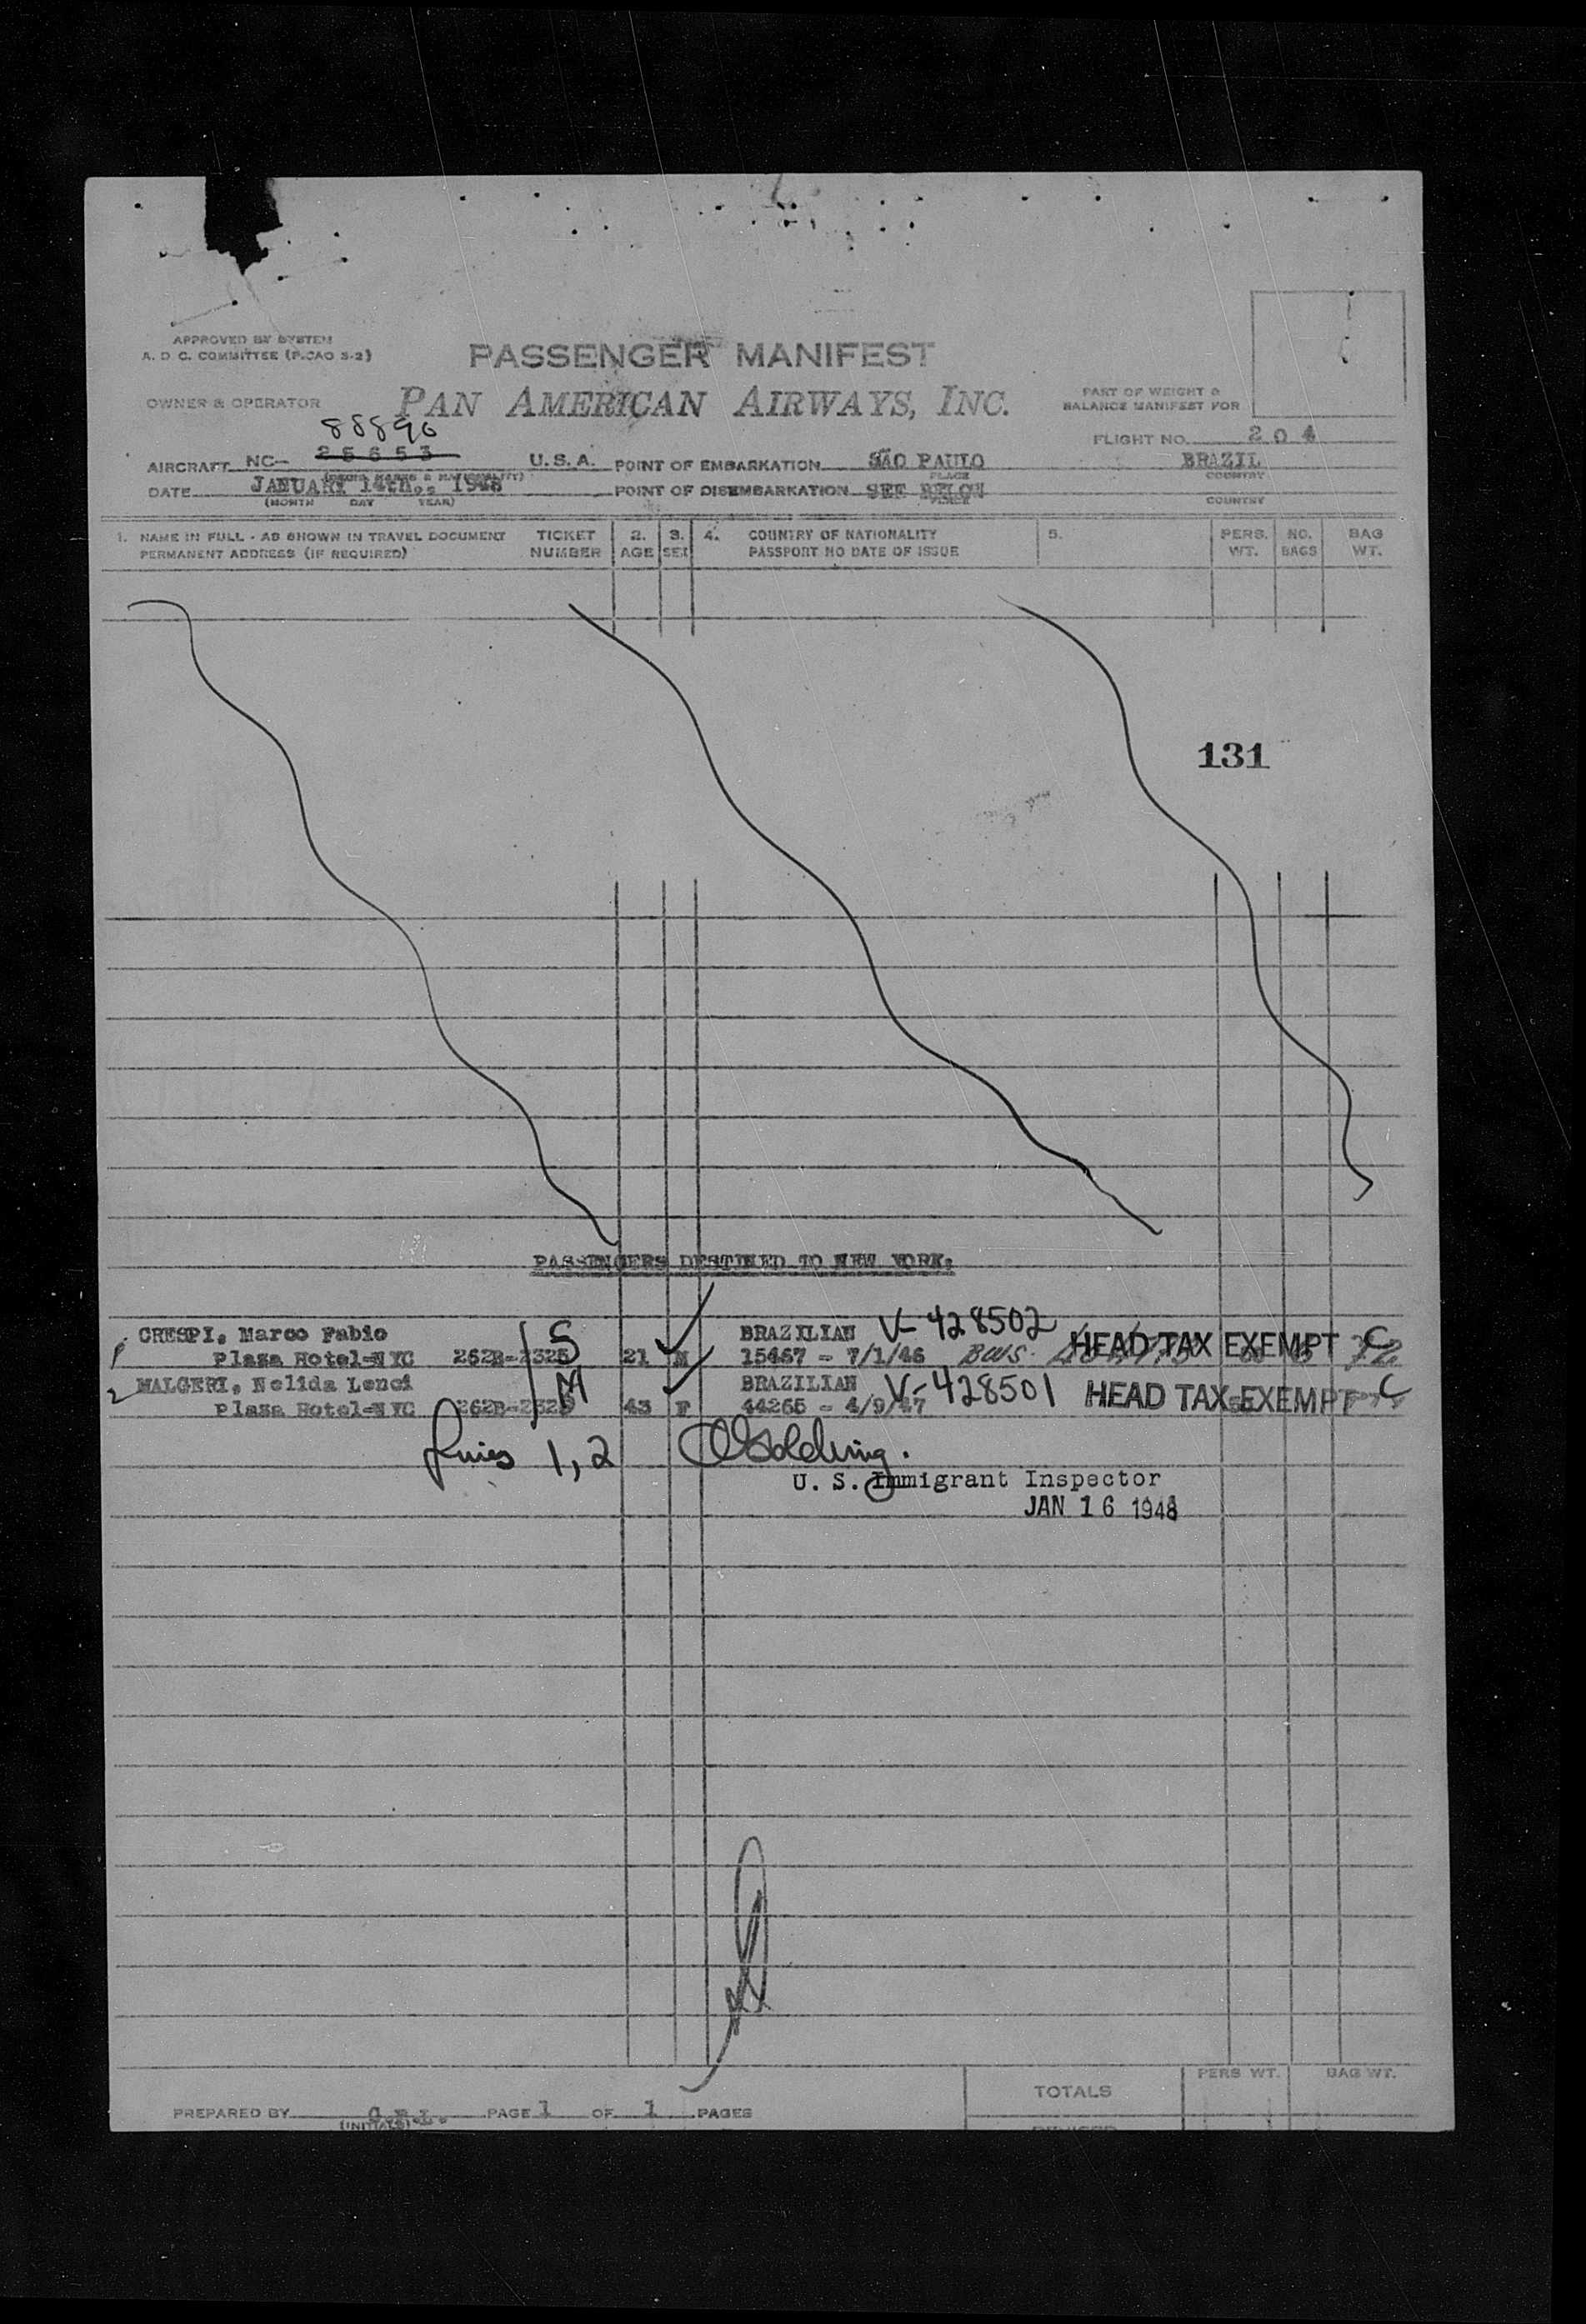 APPROVED BY SYSTEM
A. D. C. COMMITTEE (PICAO S-2)
PASSENGER MANIFEST
OWNER & OPERATOR PAN AMERICAN AIRWAYS, INC.
PART OF WEIGHT &
BALANCE MANIFEST FOR
88890
FLIGHT NO. 204
AIRCRAFT NC- 25653 U.S.A. POINT OF EMBARKATION SÃO PAULO BRAZIL
PLACE COUNTRY
DATE JANUARY 14th., 1948 POINT OF DISEMBARKATION SEE BELOW
(MONTH DAY YEAR) PLACE COUNTRY
1. NAME IN FULL - AS SHOWN IN TRAVEL DOCUMENT TICKET 2. 3. 4. COUNTRY OF NATIONALITY 5. PERS. NO. BAG
PERMANENT ADDRESS (IF REQUIRED) NUMBER AGE SEX PASSPORT NO DATE OF ISSUE WT. BAGS WT.
131
PASSENGERS DESTINED TO NEW YORK:
1 CRESPI, Marco Fabio S BRAZILIAN V-428502 HEAD TAX EXEMPT C
Plaza Hotel-NYC 262B-2325 21 M 15467 - 7/1/46
2 MALGERI, Nelida Lenci M BRAZILIAN V-428501 HEAD TAX EXEMPT C
Plaza Hotel-NYC 43 F 44265 - 4/9/47
Lines 1, 2 Golding.
U. S. Immigrant Inspector
JAN 16 1948
TOTALS PERS WT. BAG WT.
PREPARED BY PAGE 1 OF 1 PAGES
(INITIALS)